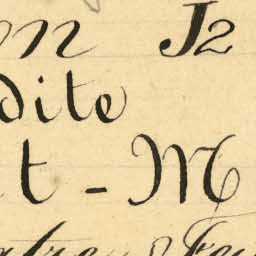 on J2
dite
t - M